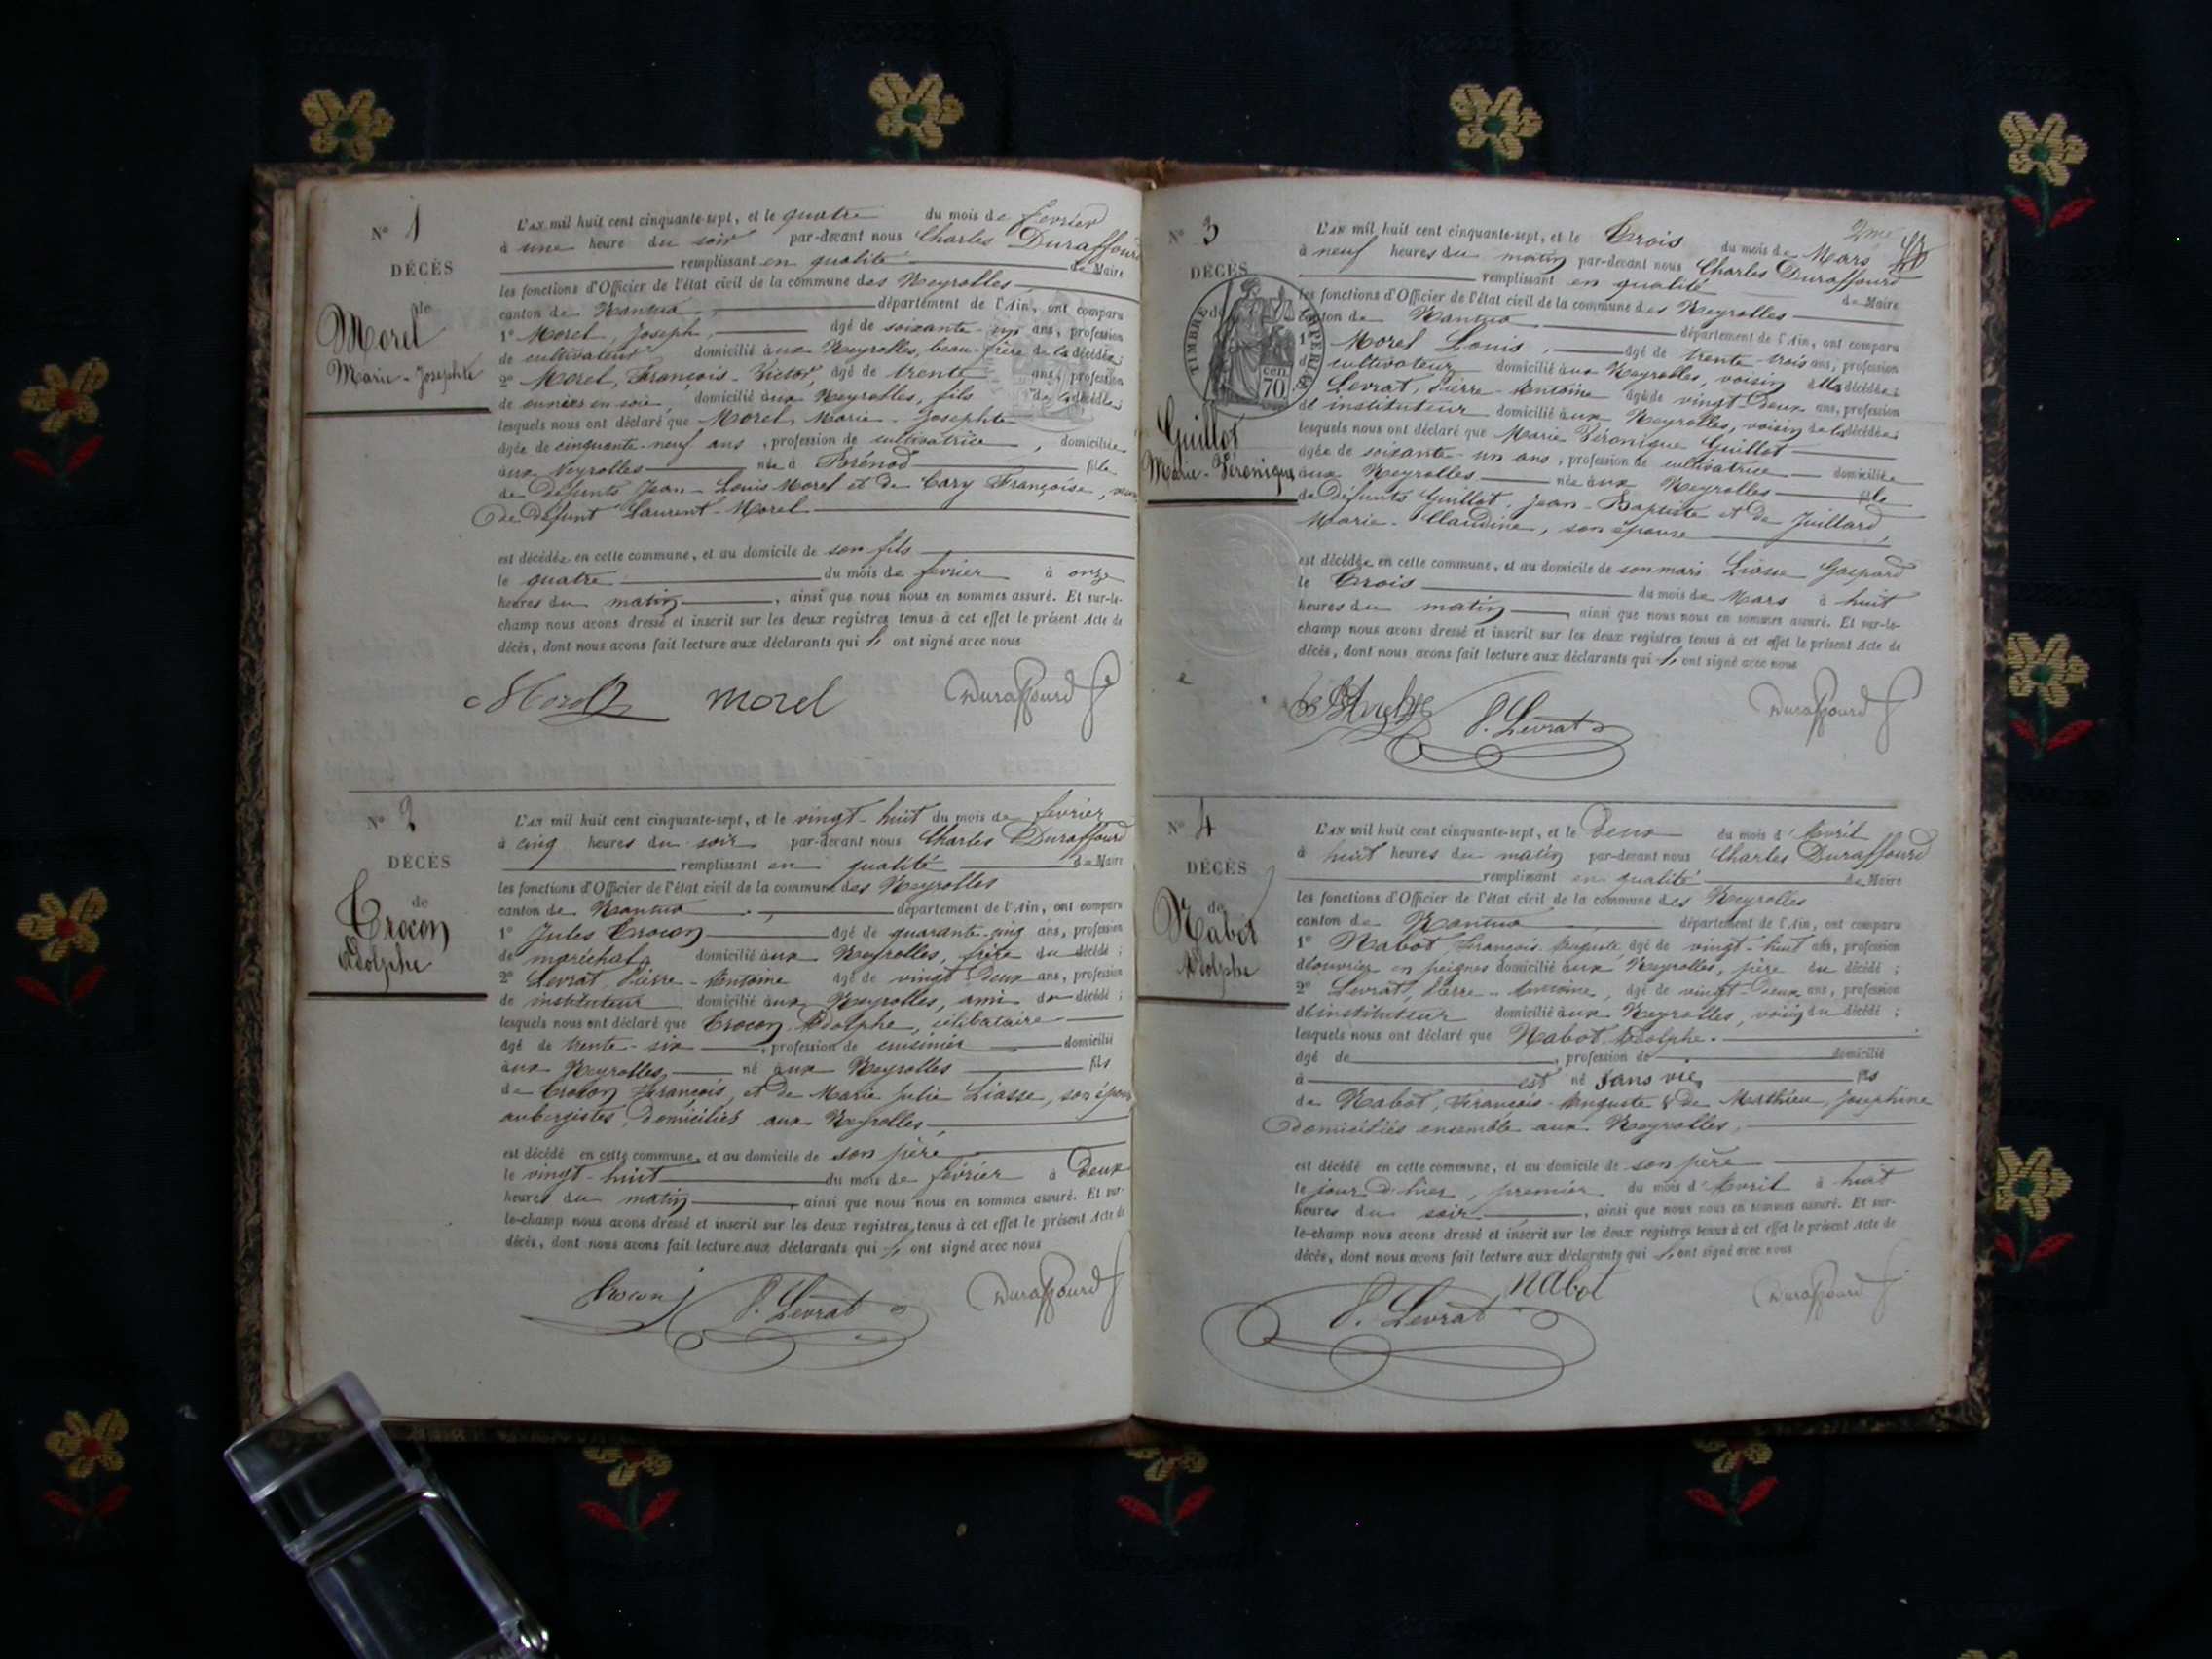 N° 1
DÉCÈS
de
Morel
Marie-Josephte
L'AN mil huit cent cinquante-sept, et le quatre du mois de fevrier
à une heure du soir par-devant nous Charles Duraffourd
remplissant en qualité de Maire
les fonctions d'Officier de l'état civil de la commune des Neyrolles
canton de Nantua, département de l'Ain, ont comparu
1° Morel, Joseph, âgé de soixante-un ans, profession
de cultivateur domicilié aux Neyrolles, beau-frère de la décédée;
2° Morel, François-Victor, âgé de trente ans, profession
de ouvrier en soie, domicilié aux Neyrolles, fils de la décédée;
lesquels nous ont déclaré que Morel, Marie-Josephte
âgée de cinquante-neuf ans, profession de cultivatrice, domiciliée
aux Neyrolles née à Brénod fille
de défunts Jean-Louis Morel et de Cary Françoise,
de défunt Laurent-Morel
est décédée en cette commune, et au domicile de son fils
le quatre du mois de fevrier à onze
heures du matin, ainsi que nous nous en sommes assuré. Et sur-le-
champ nous avons dressé et inscrit sur les deux registres tenus à cet effet le présent Acte de
décès, dont nous avons fait lecture aux déclarants qui ont signé avec nous
Morel morel Duraffourd
N° 2
DÉCÈS
de
Crocon
Adolphe
L'AN mil huit cent cinquante-sept, et le vingt-huit du mois de fevrier
à cinq heures du soir par-devant nous Charles Duraffourd
remplissant en qualité de Maire
les fonctions d'Officier de l'état civil de la commune des Neyrolles
canton de Nantua, département de l'Ain, ont comparu
1° Jules Crocon âgé de quarante-cinq ans, profession
de maréchal domicilié aux Neyrolles, frère du décédé;
2° Levrat, Pierre-Antoine âgé de vingt-deux ans, profession
de instituteur domicilié aux Neyrolles, ami du décédé;
lesquels nous ont déclaré que Crocon, Adolphe, célibataire
âgé de trente-six, profession de cuisinier domicilié
aux Neyrolles, né aux Neyrolles fils
de Crocon François, et de Marie Julie Liasse, son épouse
aubergistes, domiciliés aux Neyrolles,
est décédé en cette commune, et au domicile de son père
le vingt-huit du mois de février à deux
heures du matin, ainsi que nous nous en sommes assuré. Et sur-
le-champ nous avons dressé et inscrit sur les deux registres, tenus à cet effet le présent Acte de
décès, dont nous avons fait lecture aux déclarants qui ont signé avec nous
Crocon J P. Levrat Duraffourd
2me
N° 3
DÉCÈS
de
TIMBRE IMPERIAL
70 cen.
Guillot
Marie-Véronique
L'AN mil huit cent cinquante-sept, et le trois du mois de Mars
à neuf heures du matin par-devant nous Charles Duraffourd
remplissant en qualité de Maire
les fonctions d'Officier de l'état civil de la commune des Neyrolles
canton de Nantua département de l'Ain, ont comparu
1° Morel Louis, âgé de trente-trois ans, profession
de cultivateur domicilié aux Neyrolles, voisin de la décédée;
Levrat, Pierre-Antoine âgé de vingt-deux ans, profession
d'instituteur domicilié aux Neyrolles, voisin de la décédée;
lesquels nous ont déclaré que Marie Véronique Guillot
âgée de soixante-un ans, profession de cultivatrice domiciliée
aux Neyrolles née aux Neyrolles fille
de défunts Guillot, Jean-Baptiste et de Juillard,
Marie-Claudine, son épouse
est décédée en cette commune, et au domicile de son mari Liasse Gaspard
le trois du mois de Mars à huit
heures du matin, ainsi que nous nous en sommes assuré. Et sur-le-
champ nous avons dressé et inscrit sur les deux registres tenus à cet effet le présent Acte de
décès, dont nous avons fait lecture aux déclarants qui ont signé avec nous
P. Levrat Duraffourd
N° 4
DÉCÈS
de
Nabot
Adolphe
L'AN mil huit cent cinquante-sept, et le deux du mois d'Avril
à huit heures du matin par-devant nous Charles Duraffourd
remplissant en qualité de Maire
les fonctions d'Officier de l'état civil de la commune des Neyrolles
canton de Nantua département de l'Ain, ont comparu
1° Nabot François-Auguste, âgé de vingt-huit ans, profession
d'ouvrier en peignes domicilié aux Neyrolles, père du décédé;
2° Levrat, Pierre-Antoine, âgé de vingt-deux ans, profession
d'instituteur domicilié aux Neyrolles, voisin du décédé;
lesquels nous ont déclaré que Nabot, Adolphe.
âgé de, profession de domicilié
à est né sans vie, fils
de Nabot, François-Auguste & de Mathieu, Josephine
domiciliés ensemble aux Neyrolles,
est décédé en cette commune, et au domicile de son père
le jour d'hier, premier du mois d'Avril à huit
heures du soir, ainsi que nous nous en sommes assuré. Et sur-
le-champ nous avons dressé et inscrit sur les deux registres tenus à cet effet le présent Acte de
décès, dont nous avons fait lecture aux déclarants qui ont signé avec nous
P. Levrat nabot Duraffourd